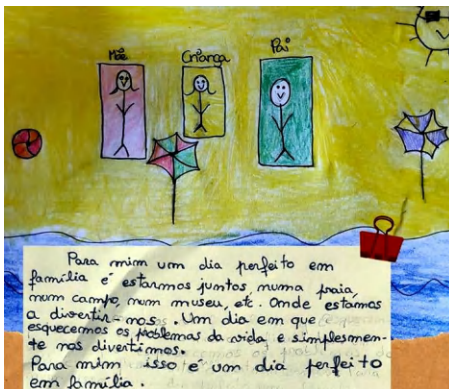 Mãe
Criança
Pai
Para mim um dia perfeito em
família é estarmos juntos, numa praia,
num campo, num museu, etc. Onde estamos
a divertir-mos. Um dia em que
esquecemos os problemas da vida e simplesmen-
te nos divertimos.
Para mim isso é um dia perfeito
em família.